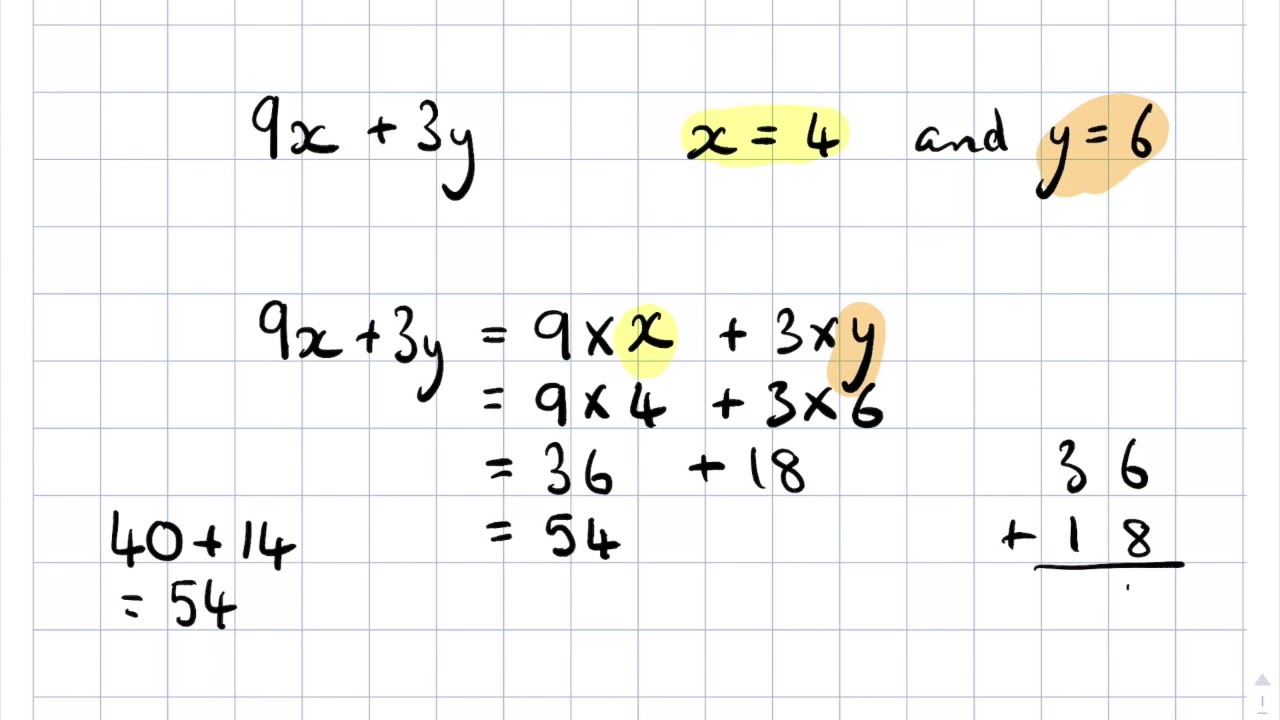 9x + 3y x = 4 and y = 6
9x + 3y = 9 × x + 3 × y
= 9 × 4 + 3 × 6
= 36 + 18
= 54
40 + 14
= 54
36
+ 18